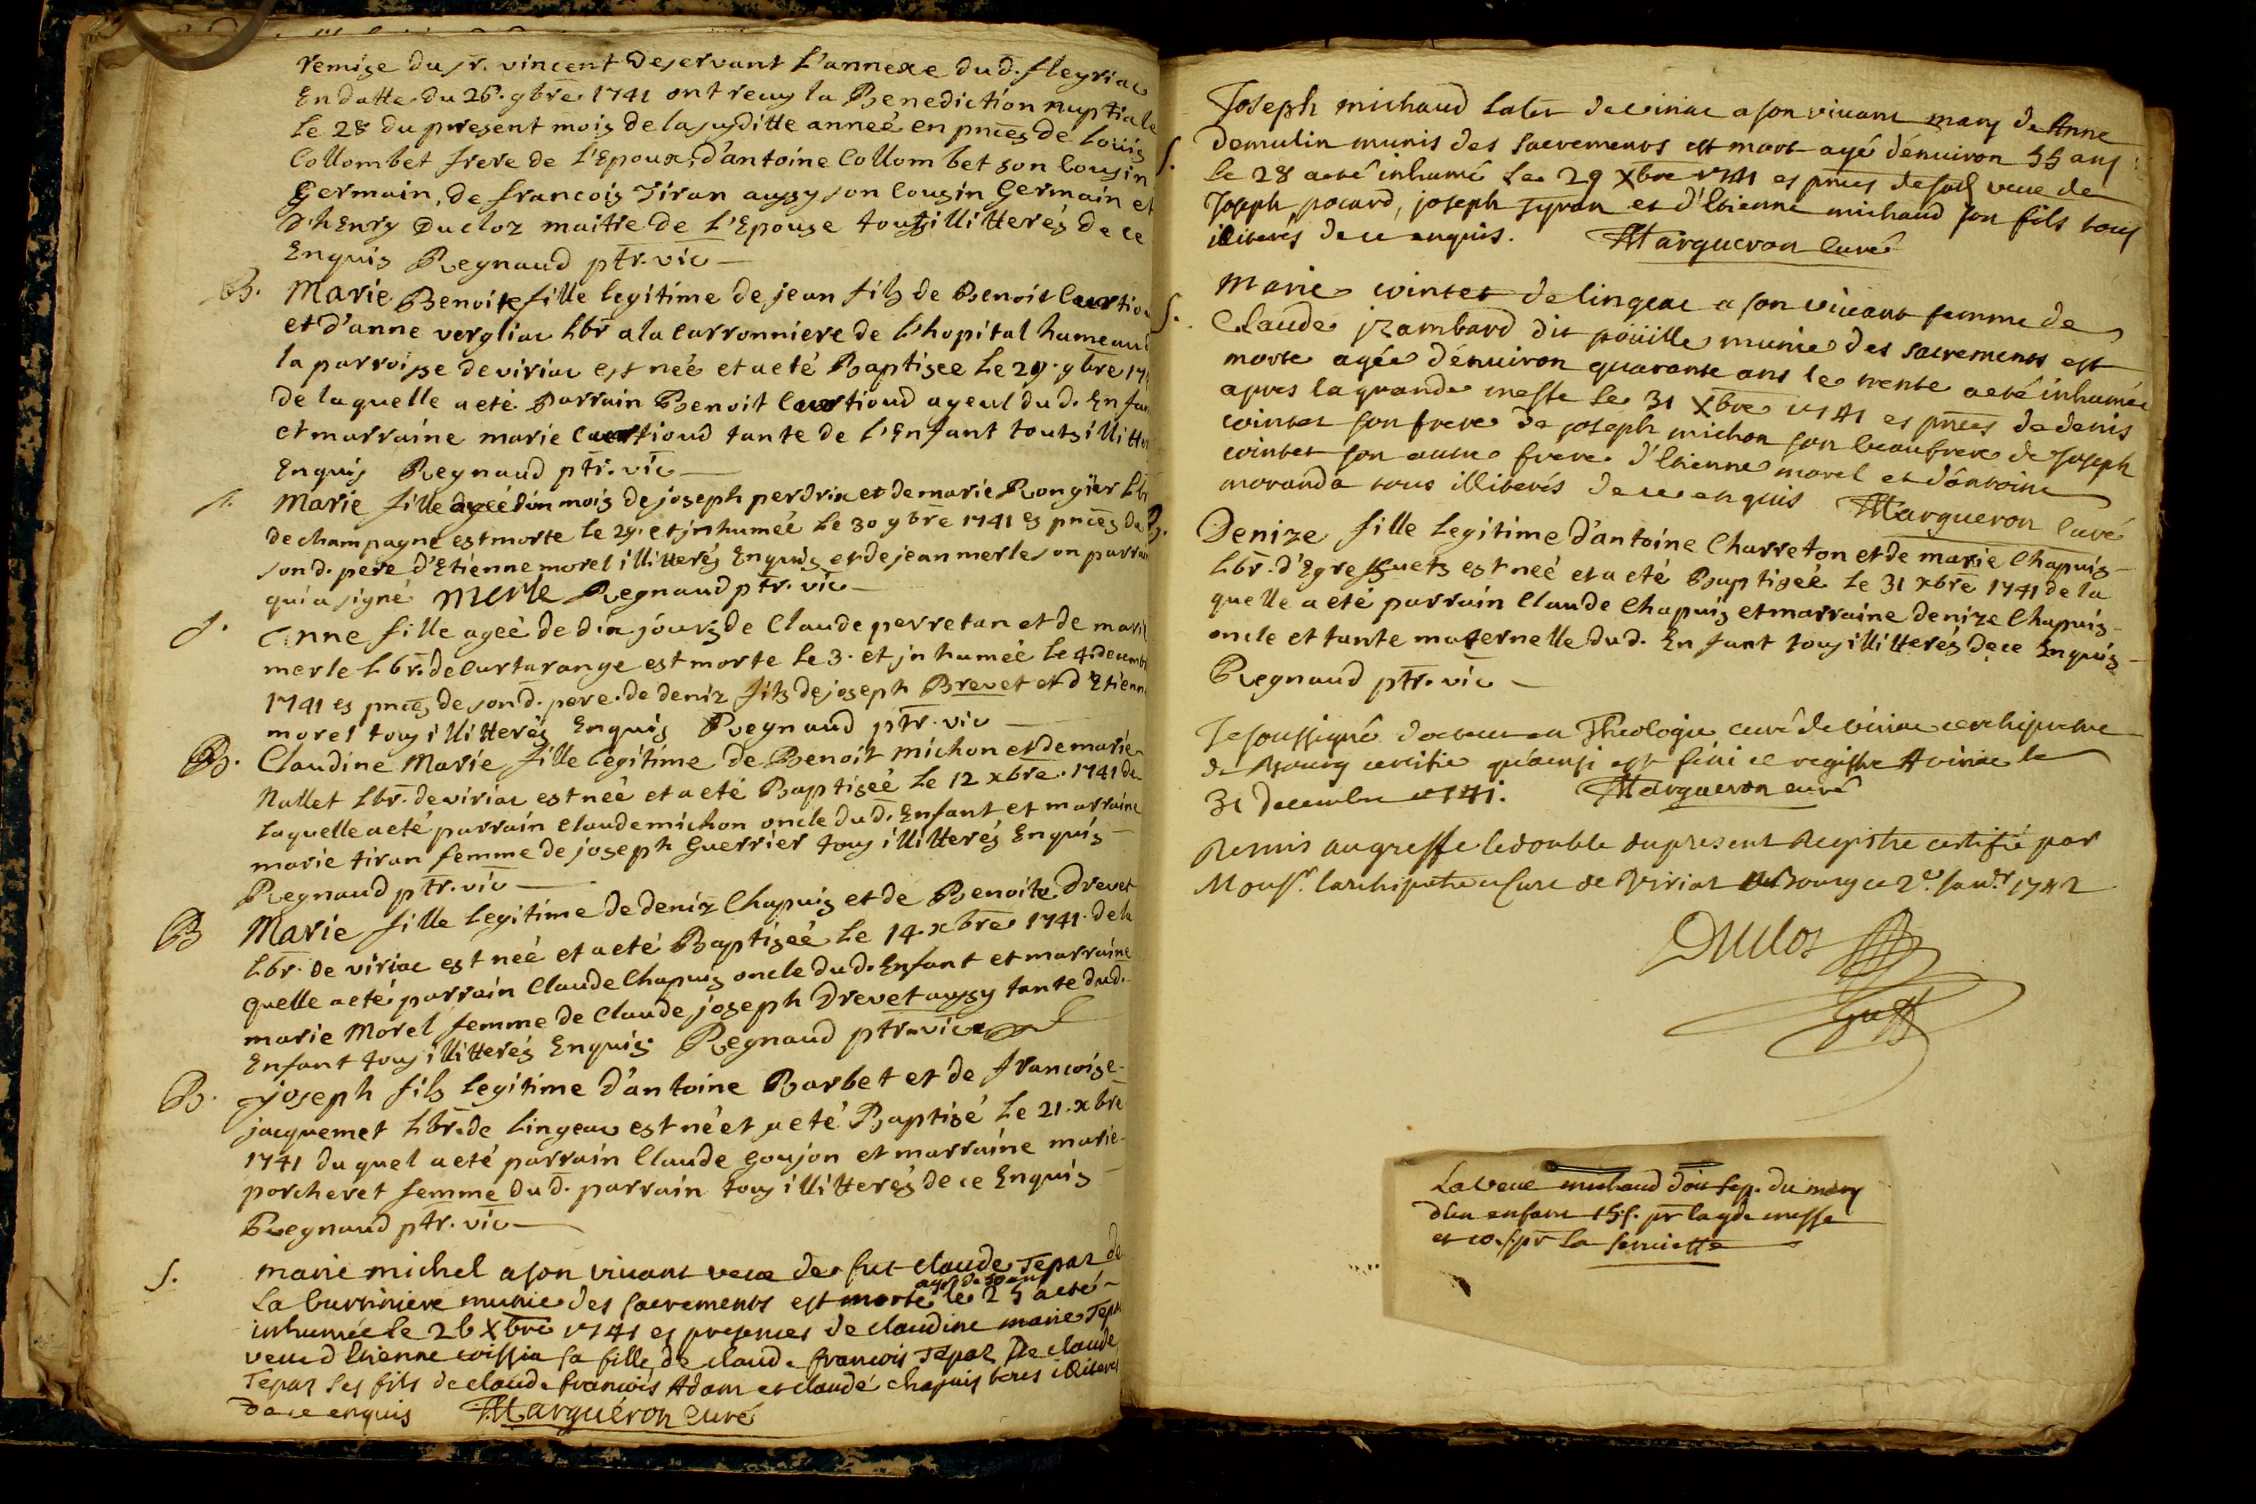 remise du sr. vincent deservant L'annexe dud. fleyriac
En datte du 26. 9bre 1741 ont reçu la Benediction nuptiale
Le 28 du present mois de la susditte anneé en pnces de Loüis
Collombet frere de L'Epoux, d'antoine Collombet son Cousin
Germain, de francois Tiran aussy son Cousin Germain et
d'henry Ducloz maitre de L'Epouse tous illitterés de ce
Enquis Regnaud ptr. vic
B. Marie Benoite fille legitime de jean fils de Benoit
et d'anne vergliac Lbr a la Carronniere de L'hopital hameau d
la parroisse de viriac est neé et a eté Baptisee Le 29. 9bre 174
de laquelle a eté Parrain Benoit ayeul dud. Enfan
et marraine marie tante de L'Enfant touts illitte
Enquis Regnaud ptr. vic
s. Marie fille ageé d'un mois de joseph perdrix et de marie Rongier Lbr
de champagne est morte le 29. et jnhumeé Le 30 9bre 1741 es pnces de
sond. pere d'Etienne morel illitterés Enquis et de jean merle son parrai
qui a signé merle Regnaud ptr. vic
s. Anne fille ageé de dix jours de Claude perretan et de marie
merle Lbr. de Curtarange est morte le 3. et jnhumeé Le 4. decemb
1741 es pnces de sond. pere. de deniz fils de joseph Brevet et d'Etienn
morel tous illitterés Enquis Regnaud ptr. vic
B. Claudine Marie fille legitime de Benoit michon et de marie
Nallet Lbr. de viriac est neé et a eté Baptiseé Le 12 xbre. 1741 de
Laquelle a eté parrain Claude michon oncle dud. Enfant et marraine
marie tiran femme de joseph Guerrier tous illitterés Enquis
Regnaud ptr. vic
B Marie fille Legitime de deniz Chapuis et de Benoite Drevet
Lbr. de viriac est neé et a eté Baptiseé Le 14. xbre 1741. de la
quelle a eté parrain Claude Chapuis oncle dud. Enfant et marraine
marie Morel femme de Claude joseph Drevet aussy tante dud.
Enfant tous illitterés Enquis Regnaud ptr. vic
B. joseph fils legitime d'antoine Barbet et de francoise
jacquemet Lbr. de Lingeac est né et a eté Baptisé Le 21. xbre
1741 du quel a eté parrain Claude Goujon et marraine marie
porcheret femme dud. parrain tous illitterés de ce Enquis
Regnaud ptr. vic
S. marie michel a son vivant veue de fut claude Tepaz de
La burtiniere munie des sacrements est morte agée de 50 ans le 25 a eté
inhumée le 26 Xbre 1741 es presences de claudine marie Tepa
veue d'Etienne sa fille, de claude francois Tepaz De claude
Tepaz ses fils de claude francois Adam et claude chapuis tous illiterés
de ce enquis Margueron Curé
S. Joseph michaud Lab de viriac a son vivant mary de Anne
Demulin munis des sacrements est mort agé d'environ 55 ans
le 28 a eté inhumé le 29 Xbre 1741 es pnces de veue de
Joseph pocard, joseph Tyran et d'Etienne michaud son fils tous
illiterés de ce enquis. Margueron Curé
S. Marie cointet de lingeac a son vivant femme de
Claude jzambard dit poüille munie des sacrements est
morte agée d'environ quarante ans le trente a eté inhumée
apres la grande messe le 31 Xbre 1741 es pnces de denis
cointet son frere de joseph michon son beaufrere de Joseph
cointet son autre frere d'Etienne morel et d'antoine
moranda tous illiterés de ce enquis Margueron Curé
B. Denize fille Legitime d'antoine Charreton et de marie Chapuis
Lbr. d'Egressuets est neé et a eté Baptiseé Le 31 xbre 1741 de la
quelle a eté parrain Claude Chapuis et marraine denize Chapuis
oncle et tante maternelle dud. Enfant tous illitterés de ce Enquis
Regnaud ptr. vic
Je soussigné docteur en Theologie curé de viriac archiprestre
de Bourg certifie qu'ainsi est fini ce registre A viriac le
31 Decembre 1741. Margueron curé
Remis au greffe le double du present Registre certifié par
Monsr. l'archiprtre et Curé de Viriat A Bourg ce 2e. Janvr 1742
Duclos
Greff
La veue michaud doit sep. du mary
d'un enfant 15s. pr la gde messe
et 10s pr la serviette